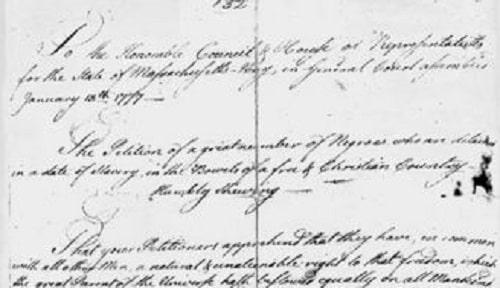 132
To the Honorable Counsel & House of Representatives
for the State of Massachusetts-Bay, in General Court assembled
January 13th 1777 —
The Petition of a great number of Negroes who are detained
in a state of Slavery, in the Bowels of a free & Christian Country —
Humbly Shewing —
That your Petitioners apprehend that they have, in common
with all other Men, a natural & unalienable right to that freedom, which
the great Parent of the Universe hath bestowed equally on all Mankind